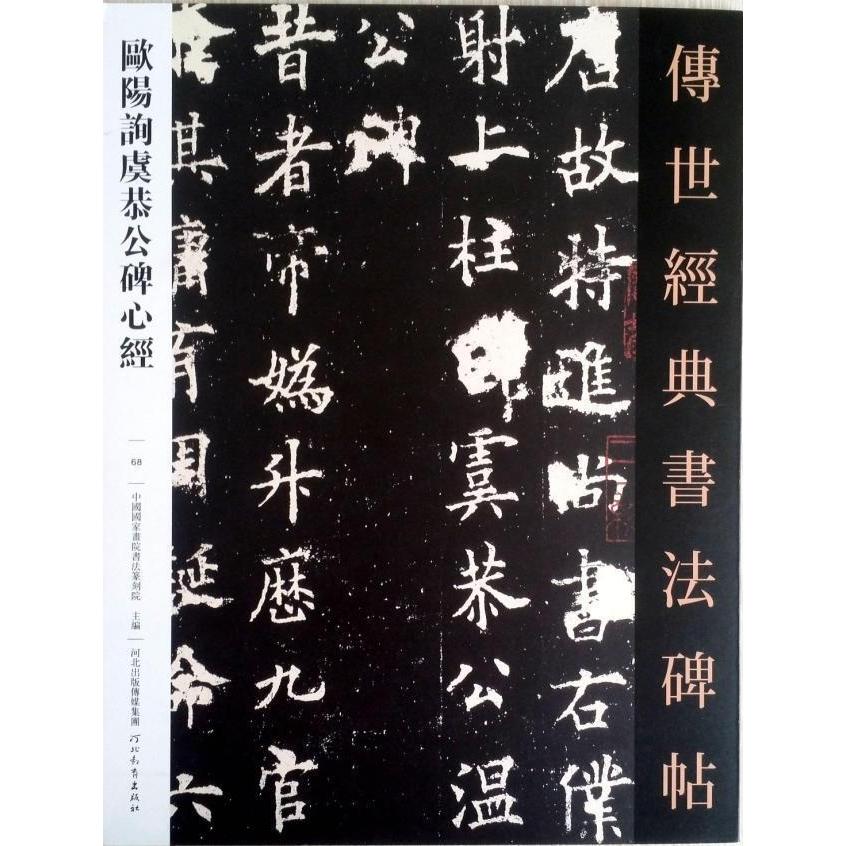 傳世經典書法碑帖
唐故特進尚書右僕
射上柱國虞恭公溫
公碑
昔者帝媯升歷九官
命六
歐陽詢虞恭公碑心經
68
中國國家畫院書法篆刻院 主編
河北出版傳媒集團
河北教育出版社